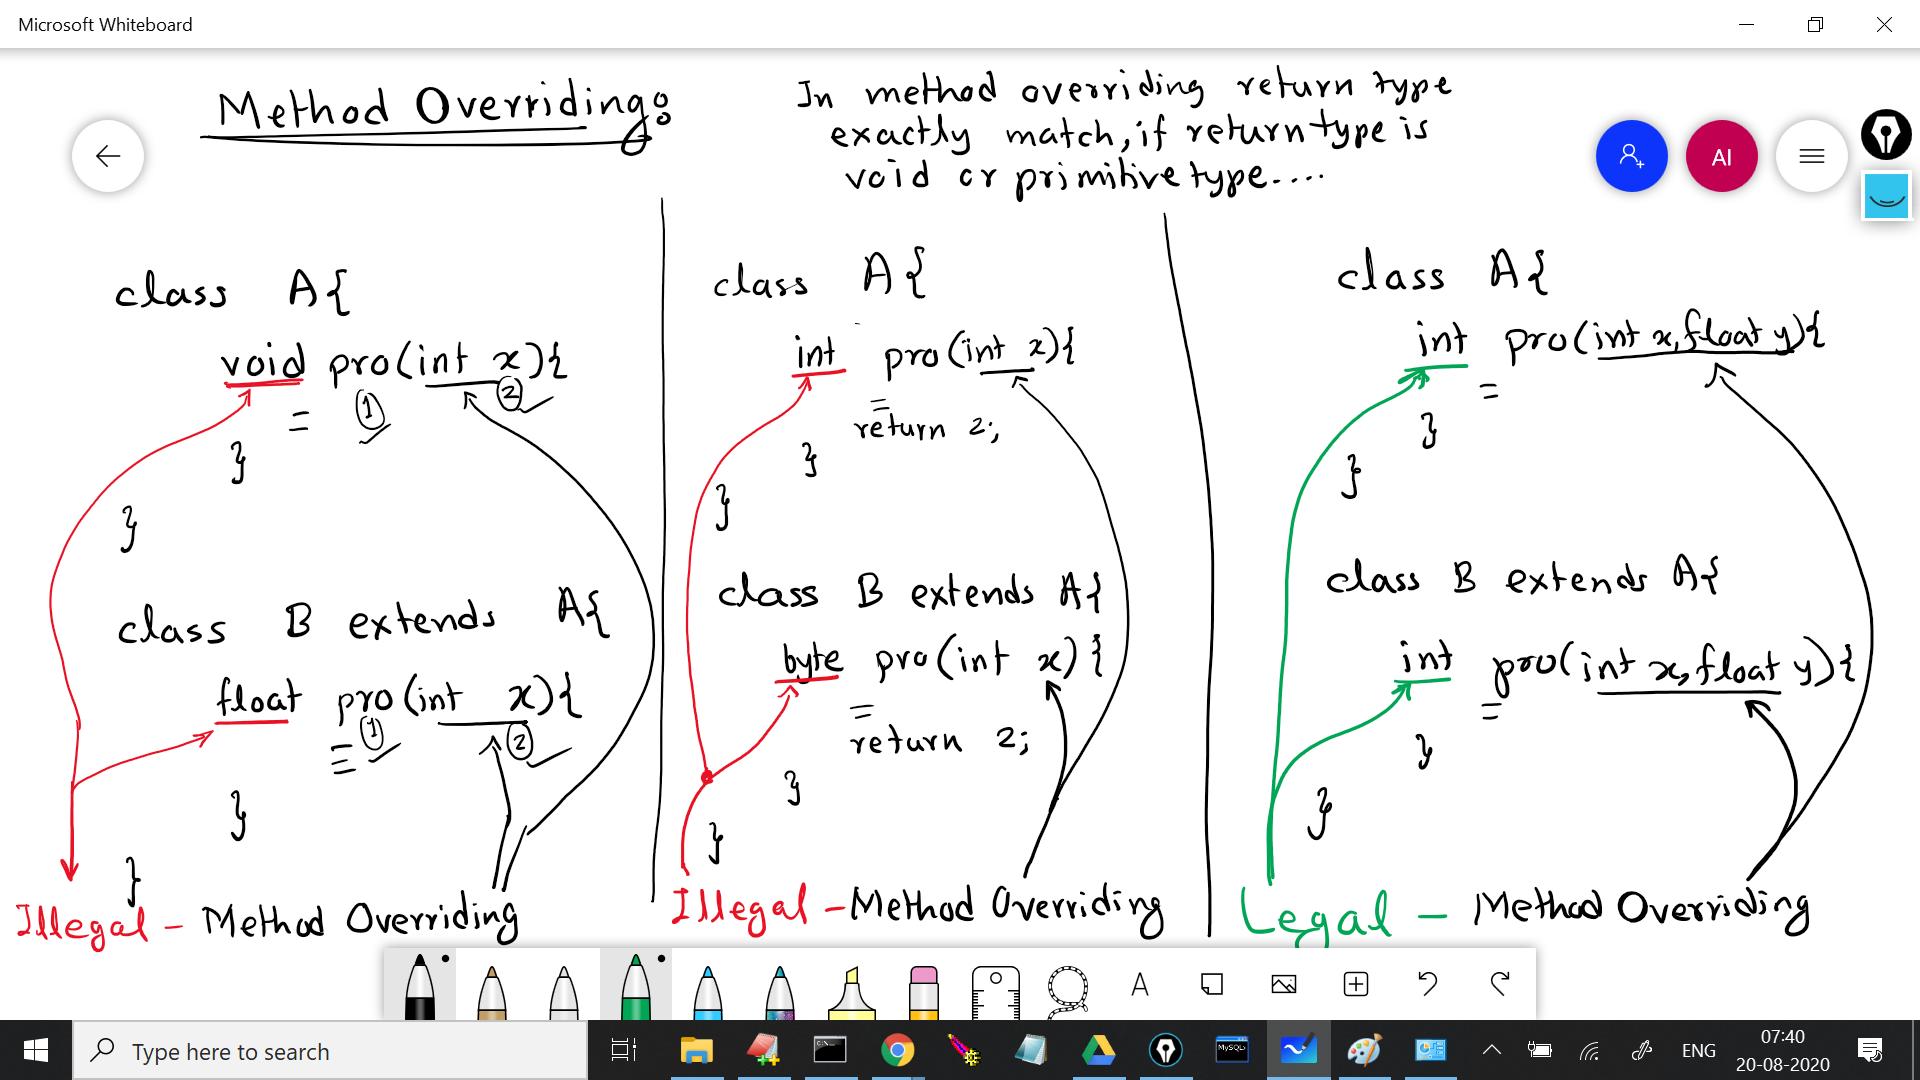 Microsoft Whiteboard
Method Overriding:
In method overriding return type
exactly match, if return type is
void or primitive type....
AI
class A{
void pro(int x){
= 1 2
}
}
class B extends A{
float pro(int x){
= 1 2
}
}
Illegal - Method Overriding
class A{
int pro(int x){
=
return 2;
}
}
class B extends A{
byte pro(int x){
=
return 2;
}
}
Illegal - Method Overriding
class A{
int pro(int x, float y){
=
}
}
class B extends A{
int pro(int x, float y){
=
}
}
Legal - Method Overriding
A
Type here to search
MySQL
ENG
07:40
20-08-2020